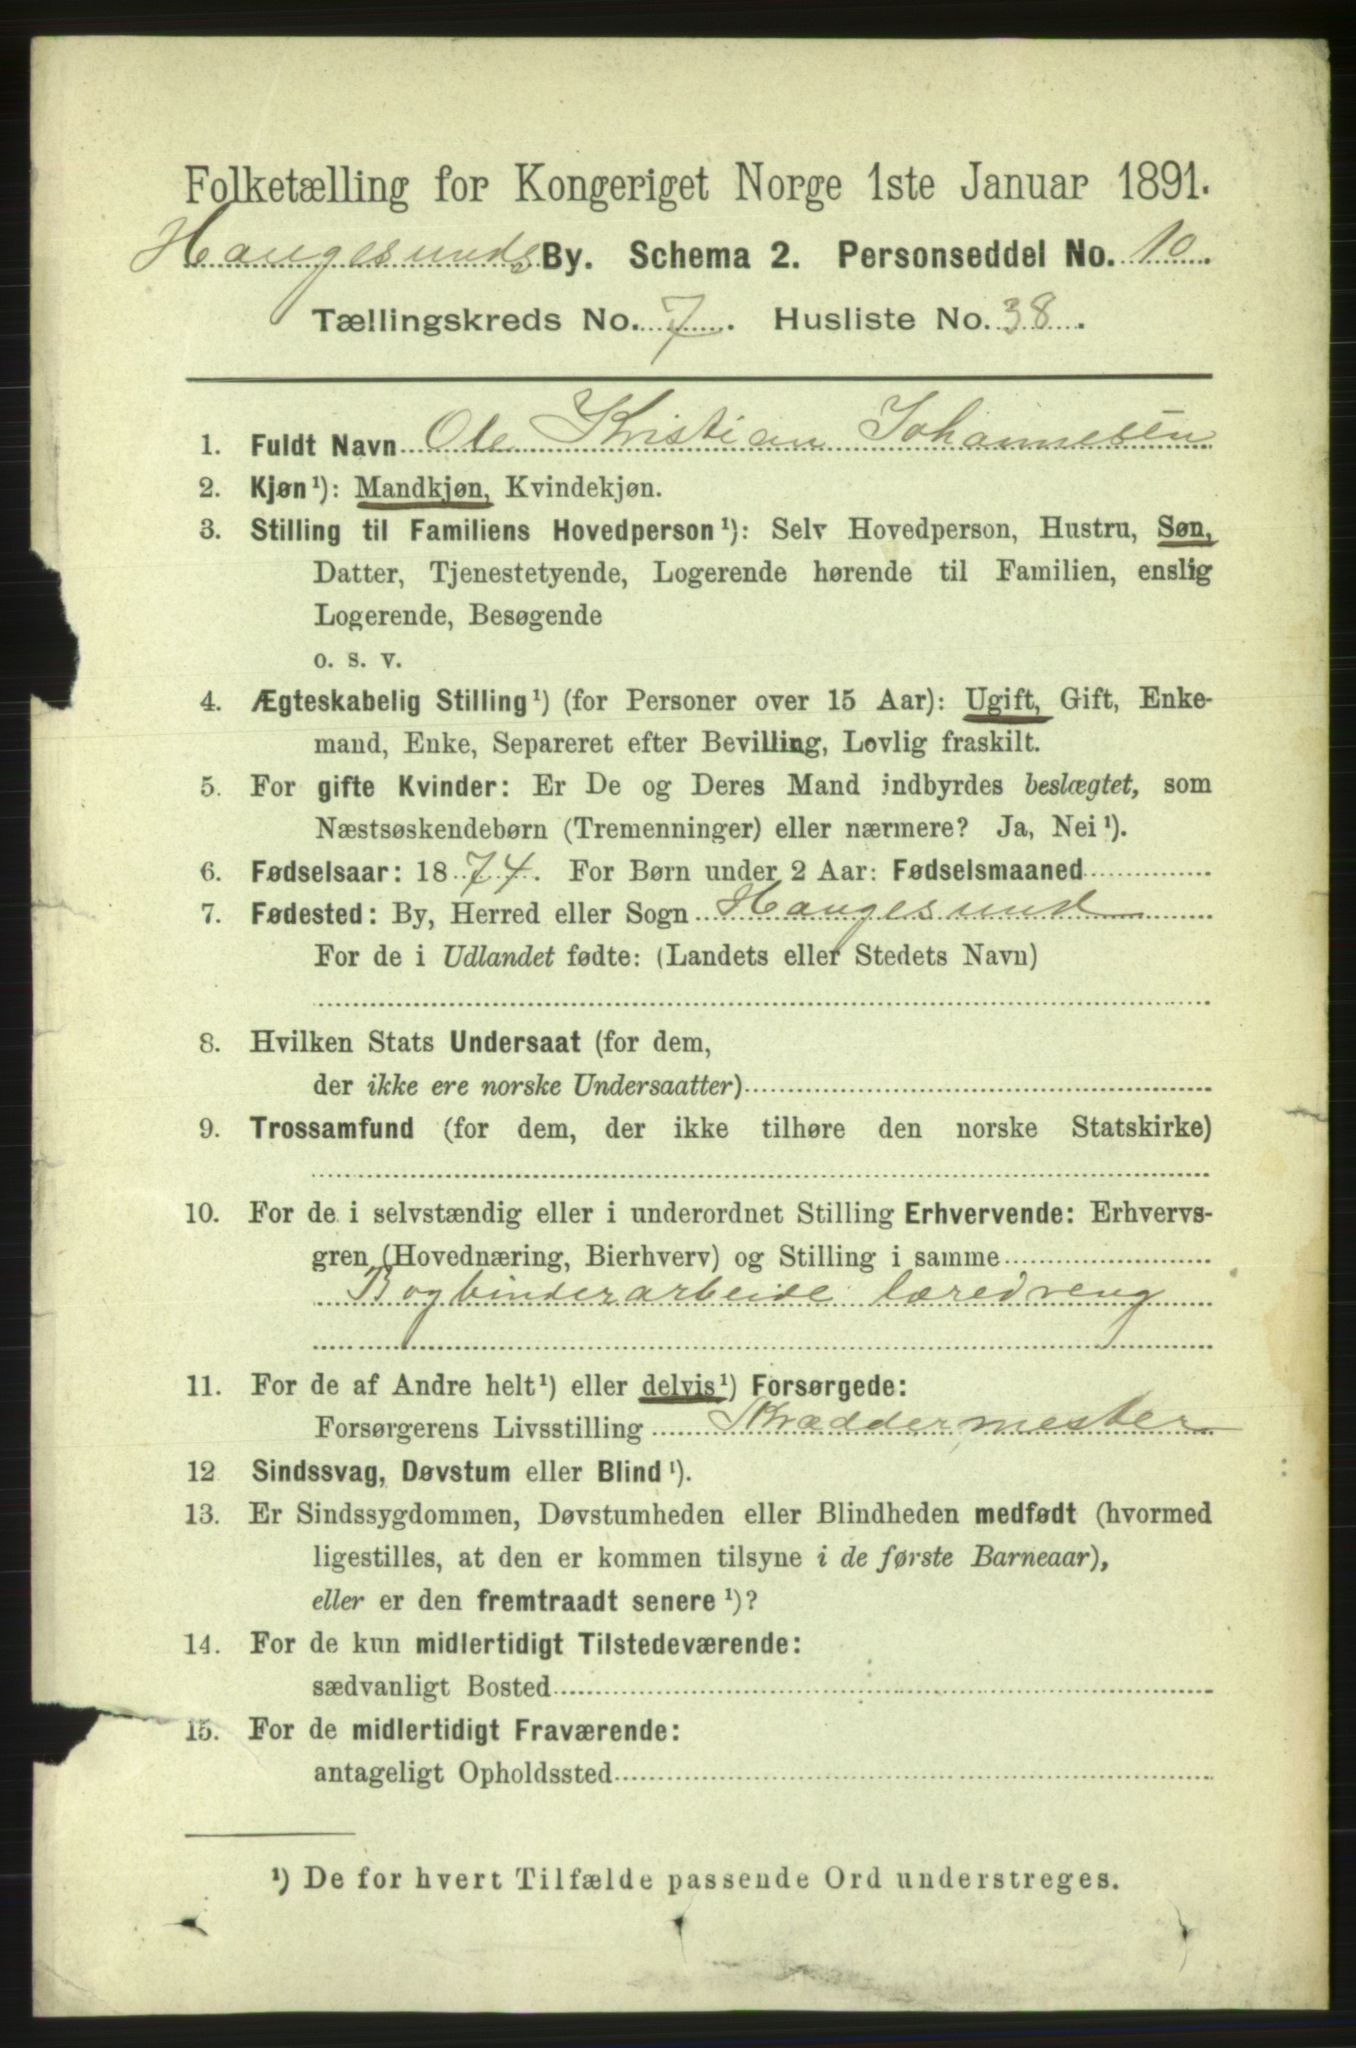 Folketælling for Kongeriget Norge 1ste Januar 1891.
Haugesunds By. Schema 2. Personseddel No. 10
Tællingskreds No. 7. Husliste No. 38.
1. Fuldt Navn Ole Kristian Johannesen
2. Kjøn¹): Mandkjøn, Kvindekjøn.
3. Stilling til Familiens Hovedperson¹): Selv Hovedperson, Hustru, Søn,
Datter, Tjenestetyende, Logerende hørende til Familien, enslig
Logerende, Besøgende
o. s. v.
4. Ægteskabelig Stilling¹) (for Personer over 15 Aar): Ugift, Gift, Enke-
mand, Enke, Separeret efter Bevilling, Lovlig fraskilt.
5. For gifte Kvinder: Er De og Deres Mand indbyrdes beslægtet, som
Næstsøskendebørn (Tremenninger) eller nærmere? Ja, Nei¹).
6. Fødselsaar: 1874. For Børn under 2 Aar: Fødselsmaaned
7. Fødested: By, Herred eller Sogn Haugesund
For de i Udlandet fødte: (Landets eller Stedets Navn)
8. Hvilken Stats Undersaat (for dem,
der ikke ere norske Undersaatter)
9. Trossamfund (for dem, der ikke tilhøre den norske Statskirke)
10. For de i selvstændig eller i underordnet Stilling Erhvervende: Erhvervs-
gren (Hovednæring, Bierhverv) og Stilling i samme
Bogbinderarbeide læredreng
11. For de af Andre helt¹) eller delvis¹) Forsørgede:
Forsørgerens Livsstilling Skræddermester
12 Sindssvag, Døvstum eller Blind¹).
13. Er Sindssygdommen, Døvstumheden eller Blindheden medfødt (hvormed
ligestilles, at den er kommen tilsyne i de første Barneaar),
eller er den fremtraadt senere¹)?
14. For de kun midlertidigt Tilstedeværende:
sædvanligt Bosted
15. For de midlertidigt Fraværende:
antageligt Opholdssted
¹) De for hvert Tilfælde passende Ord understreges.